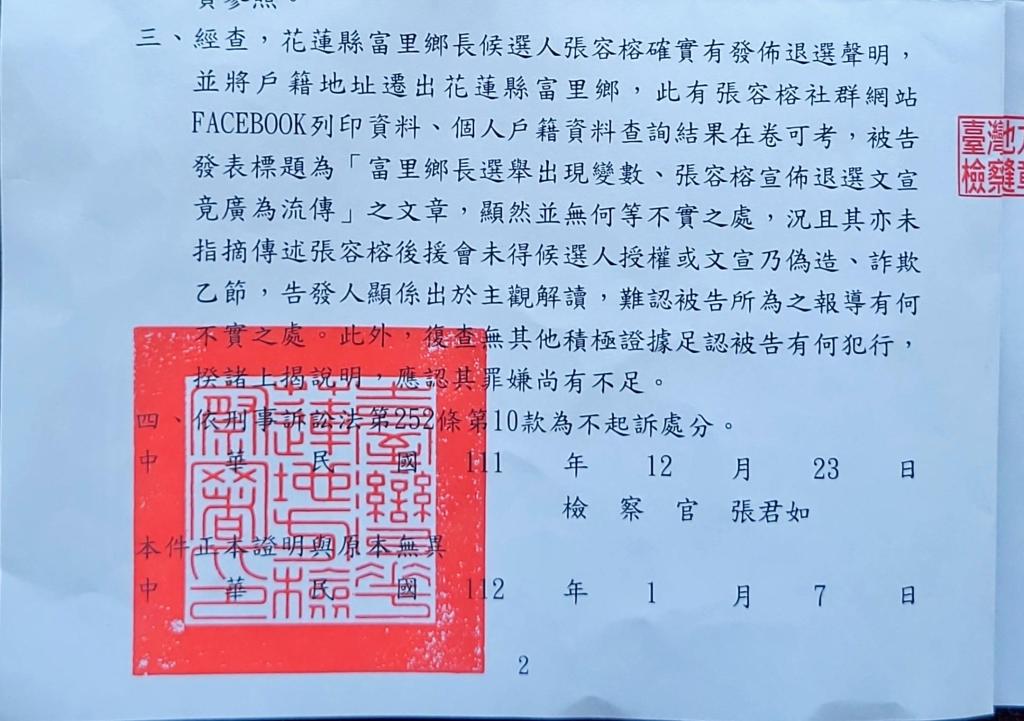 三、經查，花蓮縣富里鄉長候選人張容榕確實有發佈退選聲明，
並將戶籍地址遷出花蓮縣富里鄉，此有張容榕社群網站
FACEBOOK列印資料、個人戶籍資料查詢結果在卷可考，被告
發表標題為「富里鄉長選舉出現變數、張容榕宣佈退選文宣
竟廣為流傳」之文章，顯然並無何等不實之處，況且其亦未
指摘傳述張容榕後援會未得候選人授權或文宣乃偽造、詐欺
乙節，告發人顯係出於主觀解讀，難認被告所為之報導有何
不實之處。此外，復查無其他積極證據足認被告有何犯行，
揆諸上揭說明，應認其罪嫌尚有不足。
四、依刑事訴訟法第252條第10款為不起訴處分。
中 華 民 國 111 年 12 月 23 日
檢 察 官 張君如
本件正本證明與原本無異
中 華 民 國 112 年 1 月 7 日
臺灣花蓮地方檢察署印
臺灣地方
檢察
2